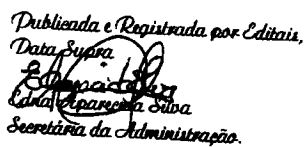 Publicada e Registrada por Editais,
Data Supra
Edna Aparecida Silva
Secretária da Administração.